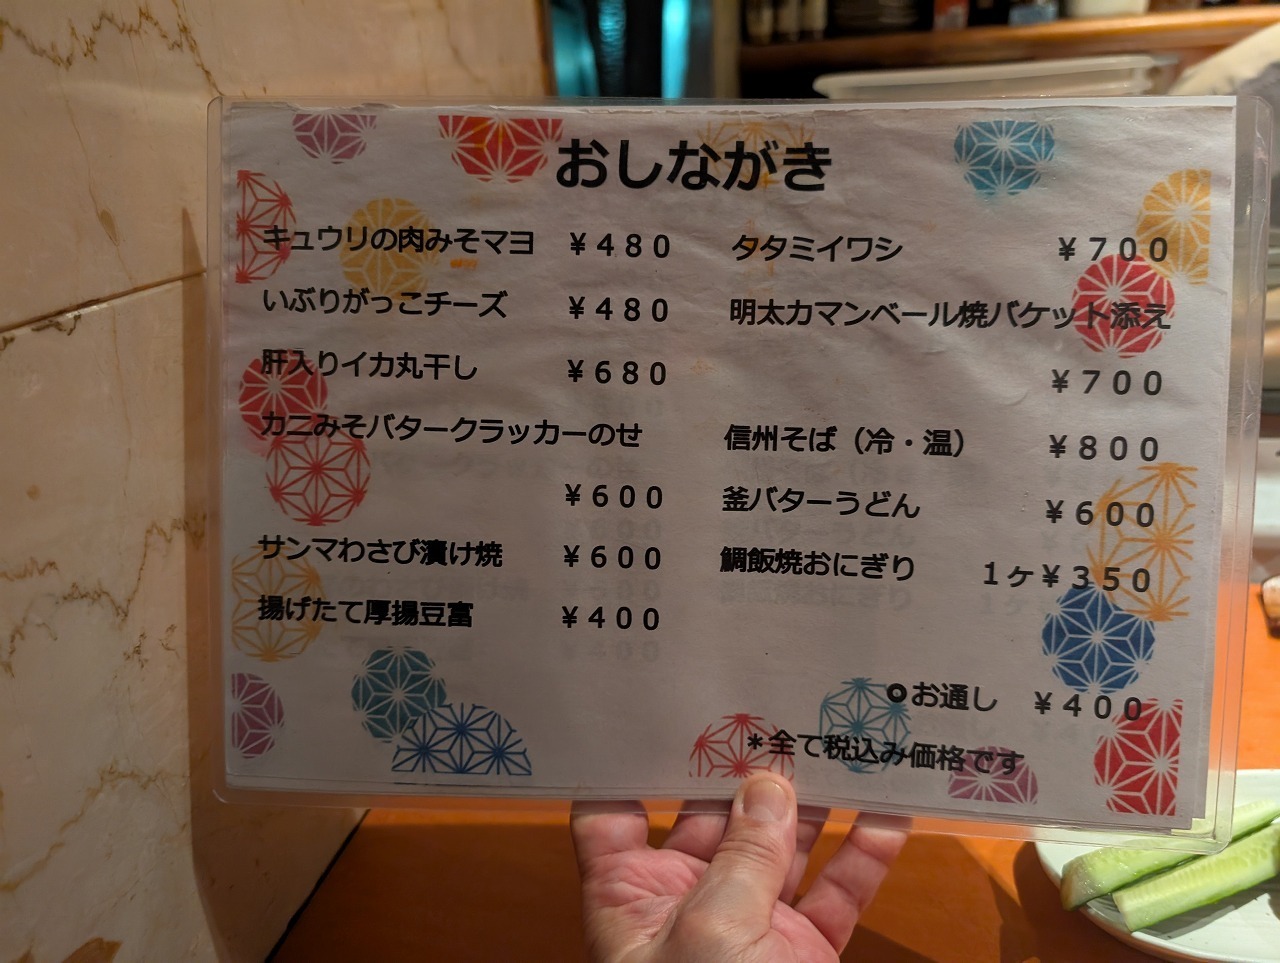 おしながき
キュウリの肉みそマヨ ￥４８０
いぶりがっこチーズ ￥４８０
肝入りイカ丸干し ￥６８０
カニみそバタークラッカーのせ
￥６００
サンマわさび漬け焼 ￥６００
揚げたて厚揚豆富 ￥４００
タタミイワシ ￥７００
明太カマンベール焼バケット添え
￥７００
信州そば（冷・温） ￥８００
釜バターうどん ￥６００
鯛飯焼おにぎり １ヶ￥３５０
⭘お通し ￥４００
＊全て税込み価格です